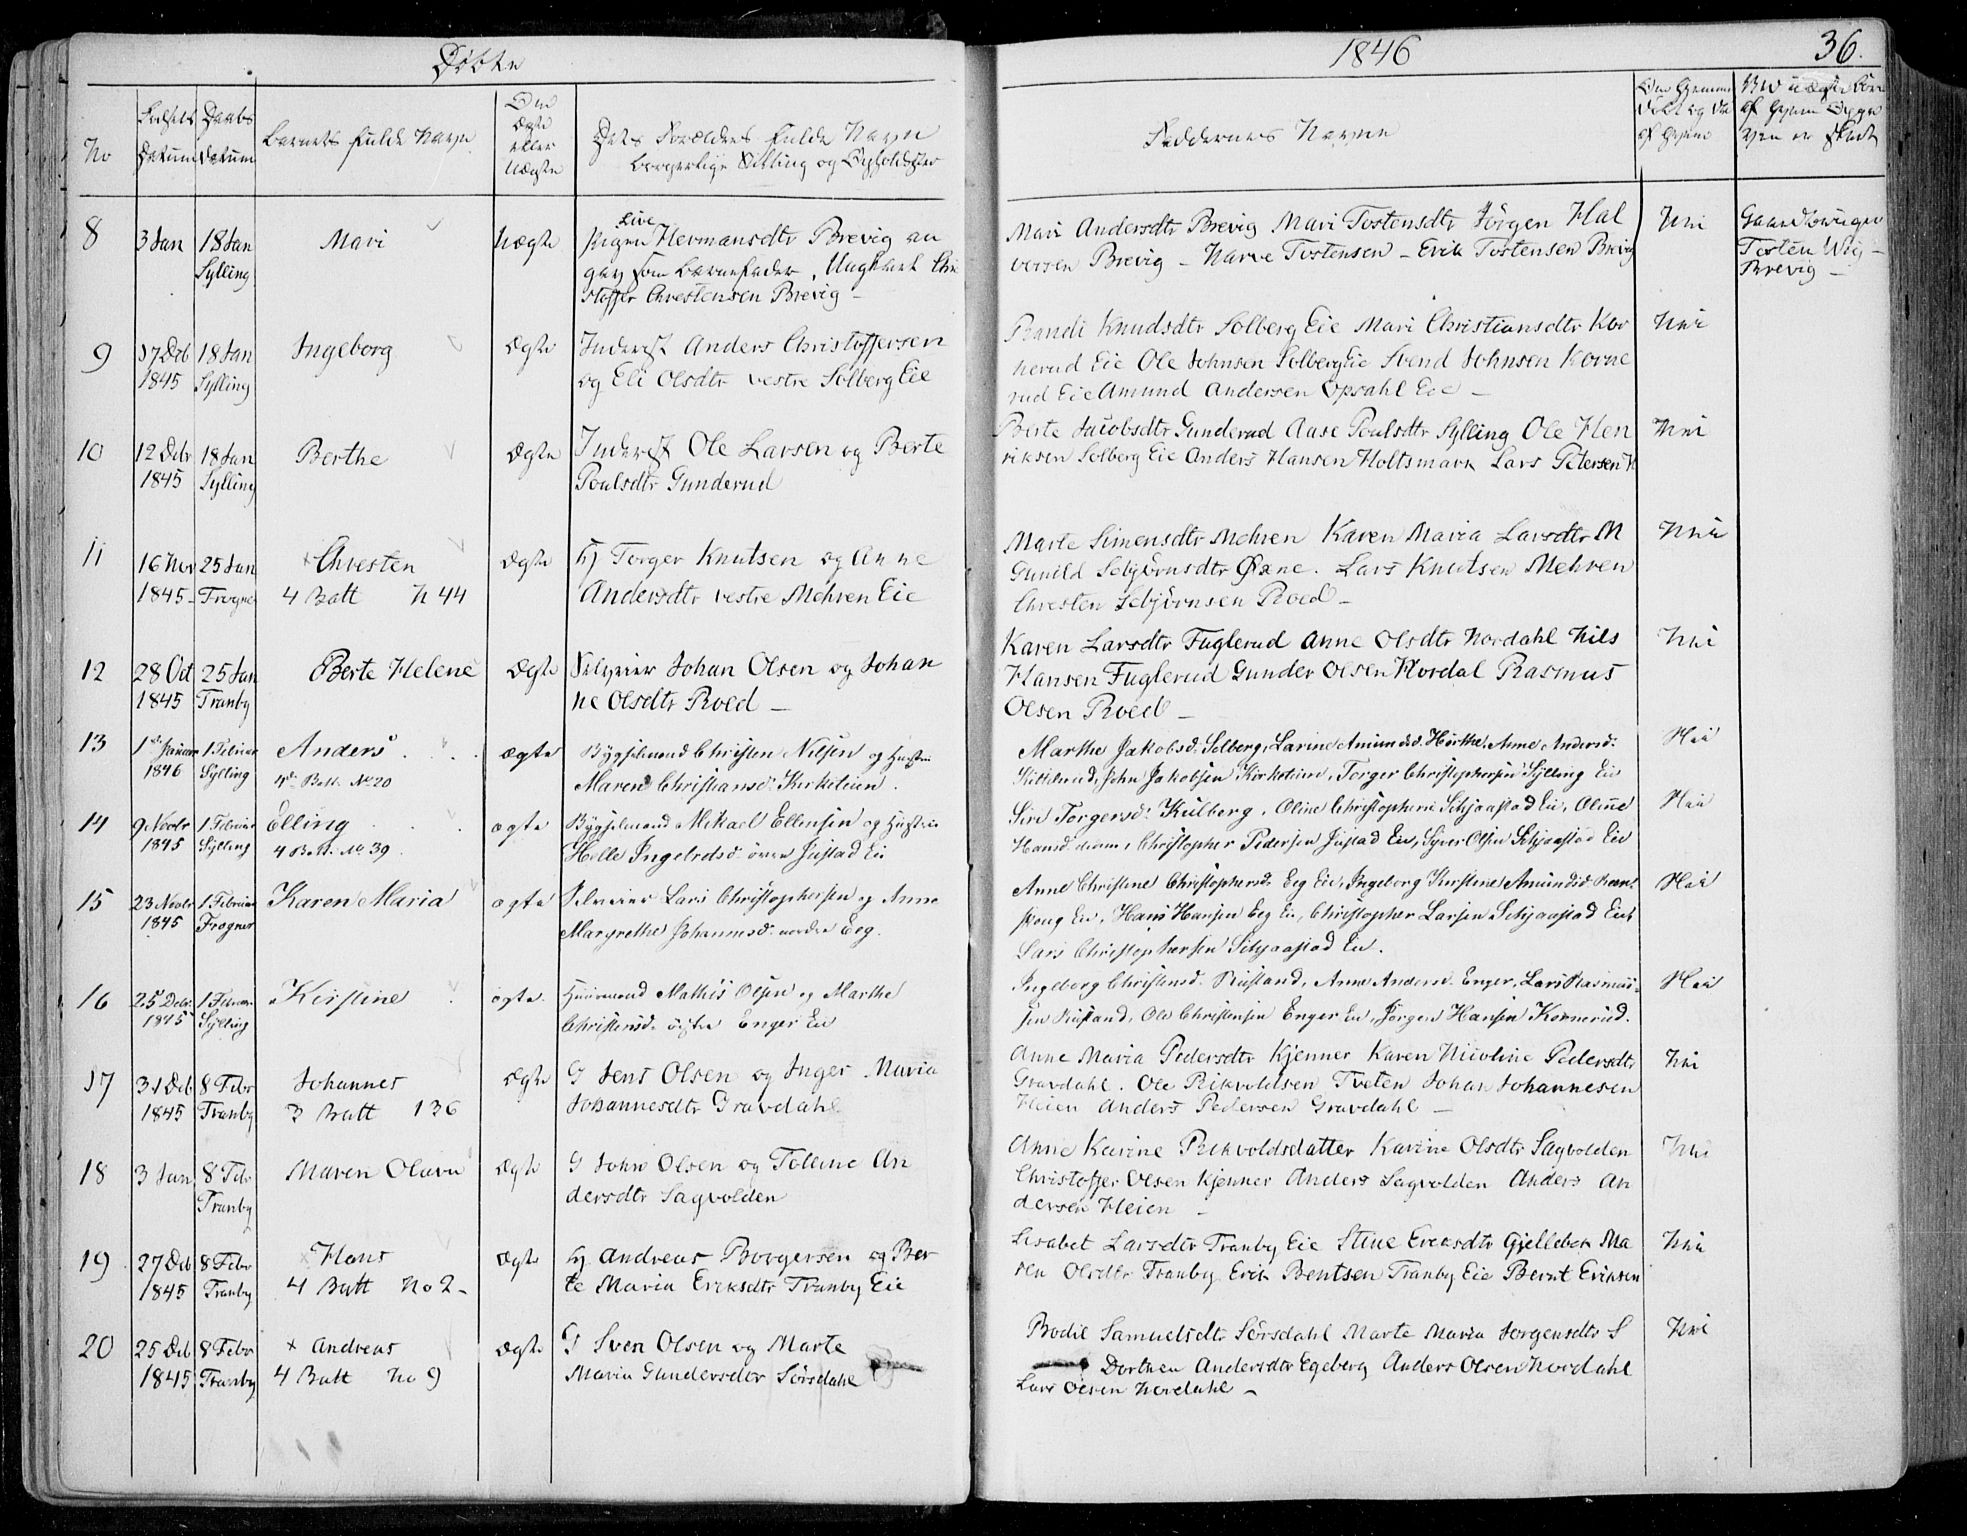 Døbte
1846
36.
No
Fødsels Datum
Daabs Datum
Barnets fulde Navn
Om ægte eller uægte
Dets Forældres fulde Navn
borgerlige Stilling og Opholdssted
Faddernes Navne
8 3 Jan 18 Jan Sylling Mari Uægte
Live
Pigen Hermansdtr Brevig an
gav som Barnefader, Ungkarl Chri
stoffer Chrestensen Brevig –
Mari Andersdtr Brevig Mari Tostensdtr Jörgen Hal
vorsen Brevig – Narve Tostensen – Erik Tostensen Brevig
Nei
Tosten
Brevig –
9 17 Deb 1845 18 Jan Sylling Ingeborg Ægte
Inderst Anders Christoffersen
og Eli Olsdtr vestre Solberg Eie
Randi Knudsdtr Solberg Eie Mari Christiansdtr Kor
nerud Eie Ole Johnsen Solberg Eie Svend Johnsen Korne
rud Eie Amund Andersen Opsahl Eie –
Nei
10 12 Debr 1845 18 Jan Sylling Berthe Ægte
Inderst Ole Larsen og Berte
Poulsdtr Gunderud
Berte Jacobsdtr Gunderud Aase Poulsdtr Sylling Ole Hen
riksen Solberg Eie Anders Hansen Holtsmark Lars Petersen H
Nei
11 16 Nov 1845 – 25 Jan Frogner Chresten Ægte
4 Batt N 44
Hj Torger Knutsen og Anne
Andersdtr vestre Mehren Eie
Marte Simensdtr Mehren Karen Maria Larsdtr M
Gunild Sebjörnsdtr Øxne. Lars Knutsen Mehren
Chresten Sebjörnsen Roed –
Nei
12 28 Oct 1845 25 Jan Tranby Berte Helene Ægte
Selveier Johan Olsen og Johan
ne Olsdtr Roed –
Karen Larsdtr Fuglerud Anne Olsdtr Nordahl Nils
Hansen Fuglerud Gunder Olsen Nordal Rasmus
Olsen Roed –
Nei
13 1ste Januar 1846 1 Februar Sylling Anders ægte
4de Batt. No 20
Bygselmand Christen Nilsen og Hustru
Maren Christiansd. Kirketeien.
Marthe Jakobsd. Solberg, Larine Amundsd. Hörthe, Anne Andersd.
Kittilsrud, John Jakobsen Kirketeien, Torger Christophersen Sylling Eie
Nei
14 9 Novbr 1845 1 Februar Sylling Elling ægte
4 Batt. No. 39.
Bygselmand Mikael Ellensen og Hustru
Helle Ingebretsd. övre Justad Eie
Siri Torgersd. Kulberg, Oline Christophersd. Schjaastad Eie, Oline
Hansd. , Christopher Pedersen Justad Eie, Syver Olsen Schjaastad Eie
Nei
15 23 Novbr 1845 1 Februar Frogner Karen Maria ægte
Selveier Lars Christophersen og Anne
Margrethe Johannesd. nordre Eeg.
Anne Christine Christophersd. Eeg Eie, Ingeborg Kirstine Amundsd.
skoug Eie, Hans Hansen Eeg Eie, Christopher Larsen Schjaastad Eie &
Lars Christophersen Schjaastad Eie.
Nei
16 25 Debr. 1845 1 Februar Sylling Kirstine ægte
Huusmand Mathis Olsen og Marthe
Christensd. östre Enger Eie
Ingeborg Christensd. Rustand, Anne Andersd. Enger, Lars Rasmus-
sen Rustand, Ole Christensen Enger Eie, Jörgen Hansen Kornerud.
Nei
17 31 Deb 1845 8 Febr Tranby Johannes Ægte
3 Batt 136
G Jens Olsen og Inger Maria
Johannesdtr Gravdahl
Anne Maria Pedersdtr Kjenner Karen Nicoline Pedersdtr
Gravdahl. Ole Rikvoldsen Tveten Johan Johannesen
Heien Anders Pedersen Gravdahl –
Nei
18 3 Jan 8 Febr Tranby Maren Olava Ægte
G John Olsen og Tolline An
dersdtr Sagvolden
Anne Karine Rikvoldsdatter Karine Olsdtr Sagvolden
Christoffer Olsen Kjenner Anders Sagvolden Anders An
dersen Heien –
Nei
19 27 Deb 1845 8 Febr Tranby Hans Ægte
4 Batt No 2 –
Hj Andreas Borgersen og Ber
te Maria Eriksdtr Tranby Eie
Lisabet Larsdtr Tranby Eie Stine Eriksdtr Gjellebek Ma
ren Olsdtr Tranby Erik Bentsen Tranby Eie Bernt Eriksen
Nei
20 25 Deb 1845 8 Febr Tranby × Andreas Ægte
4 Batt No 9
G Sven Olsen og Marte
Maria Gundersdtr Sörsdahl
Bodil Samuelsdtr Sörsdahl Marte Maria Jorgensdtr S
Dorthea Andersdtr Egeberg Anders Olsen Nordahl
Lars Olsen Nordahl –
Nei